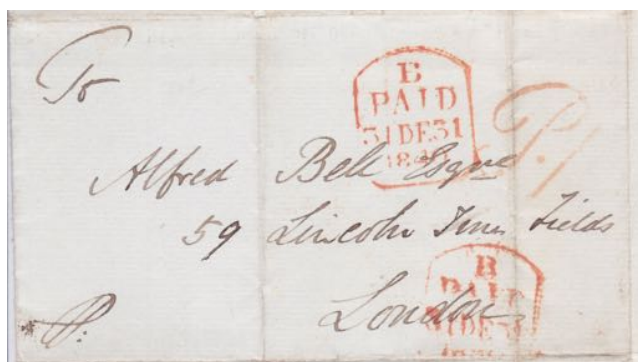 To
B
PAID
31 DE 31
1840
P.1
Alfred Bell Esqre
59 Lincoln Inns Fields
London
B
PAID
31 DE 31
P.